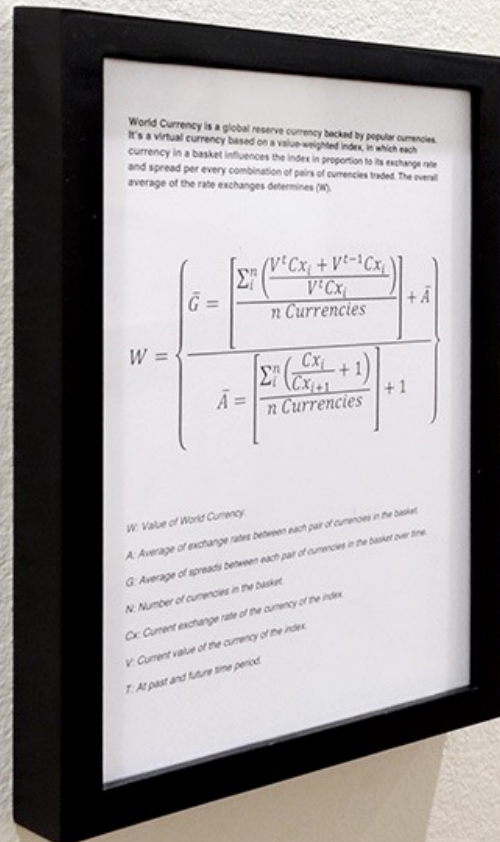 World Currency is a global reserve currency backed by popular currencies.
It's a virtual currency based on a value-weighted index, in which each
currency in a basket influences the index in proportion to its exchange rate
and spread per every combination of pairs of currencies traded. The overall
average of the rate exchanges determines (W).
W = { Ḡ = [ Σᵢⁿ ( (VᵗCxᵢ + Vᵗ⁻¹Cxᵢ) / VᵗCxᵢ ) / n Currencies ] + Ā
Ā = [ Σᵢⁿ ( Cxᵢ / Cxᵢ₊₁ + 1 ) / n Currencies ] + 1 }
W: Value of World Currency.
A: Average of exchange rates between each pair of currencies in the basket.
G: Average of spreads between each pair of currencies in the basket over time.
N: Number of currencies in the basket.
Cx: Current exchange rate of the currency of the index.
V: Current value of the currency of the index.
T: At past and future time period.